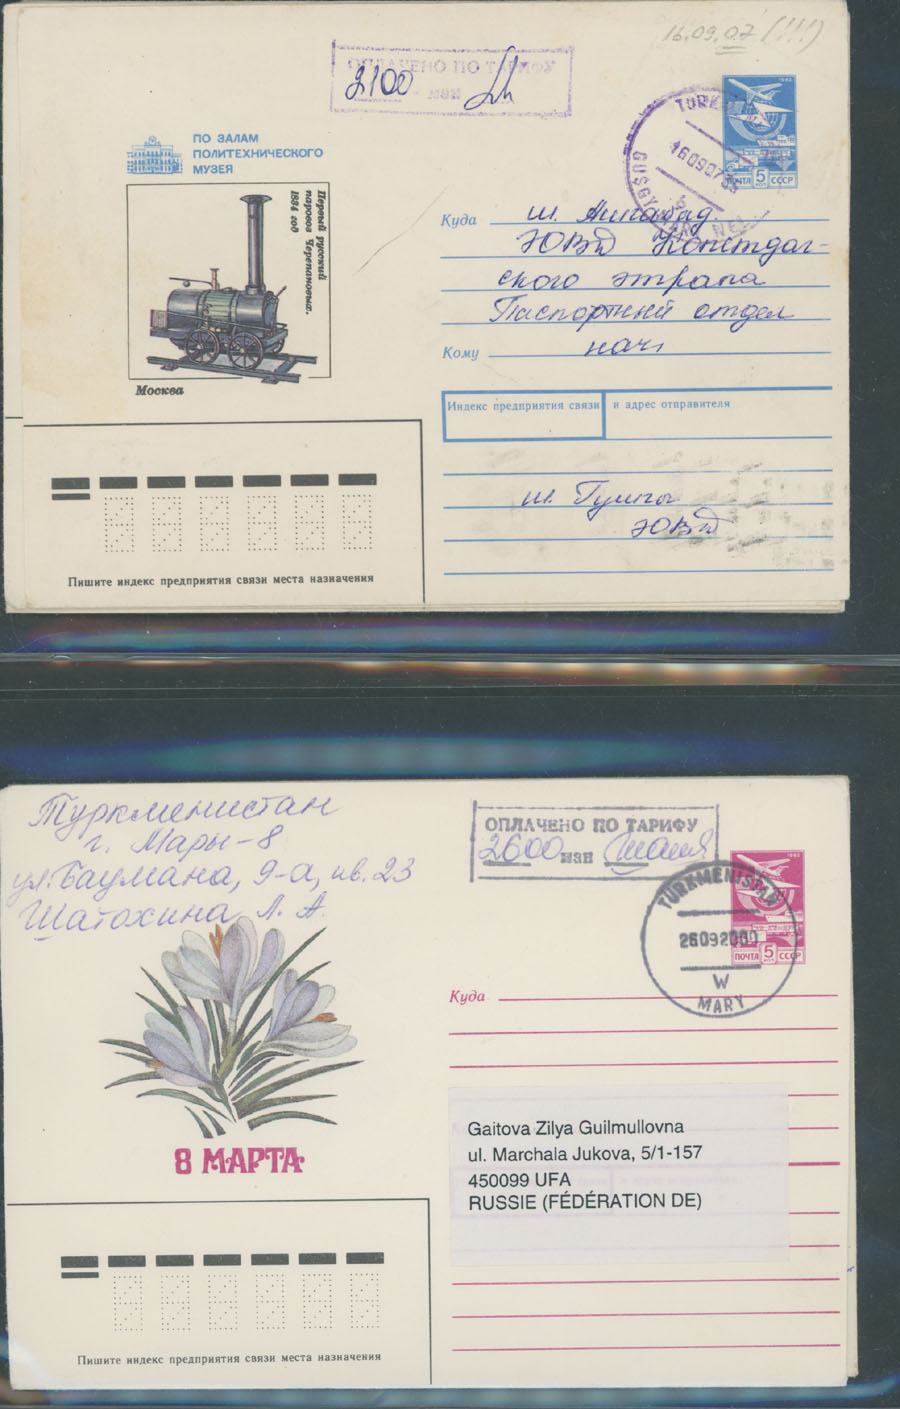 16.09.07 (!!!)
ОПЛАЧЕНО ПО ТАРИФУ
2100 ман
1982
ПОЧТА 5 СССР
TURK
160907
GUŞGY
ПО ЗАЛАМ
ПОЛИТЕХНИЧЕСКОГО
МУЗЕЯ
Первый русский
паровоз Черепановых.
1834 год
Москва
Куда
ст. Ашгабад
ЮВД Копетдаг-
ского этрапа
Паспортный отдел
Кому нач.
Индекс предприятия связи и адрес отправителя
ст. Гушгы
ЮВД
Пишите индекс предприятия связи места назначения
Туркменистан
г. Мары-8
ул. Баумана, 9-а, кв. 23
Шатохина Л. А.
ОПЛАЧЕНО ПО ТАРИФУ
2600 ман
1982
ПОЧТА 5 СССР
TÜRKMENISTAN
26092000
W
MARY
Куда
8 МАРТА
Gaitova Zilya Guilmullovna
ul. Marchala Jukova, 5/1-157
450099 UFA
RUSSIE (FÉDÉRATION DE)
Пишите индекс предприятия связи места назначения